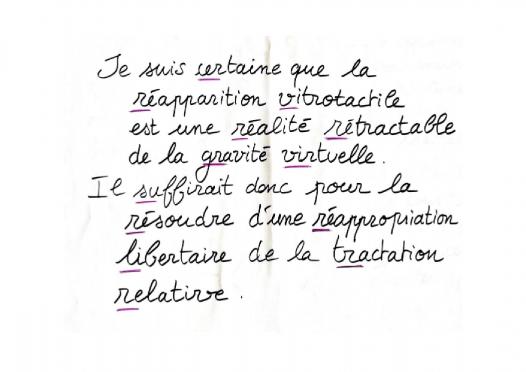 Je suis certaine que la
réapparition vitrotactile
est une réalité rétractable
de la gravité virtuelle.
Il suffirait donc pour la
résoudre d'une réappropriation
libertaire de la tractation
relative.